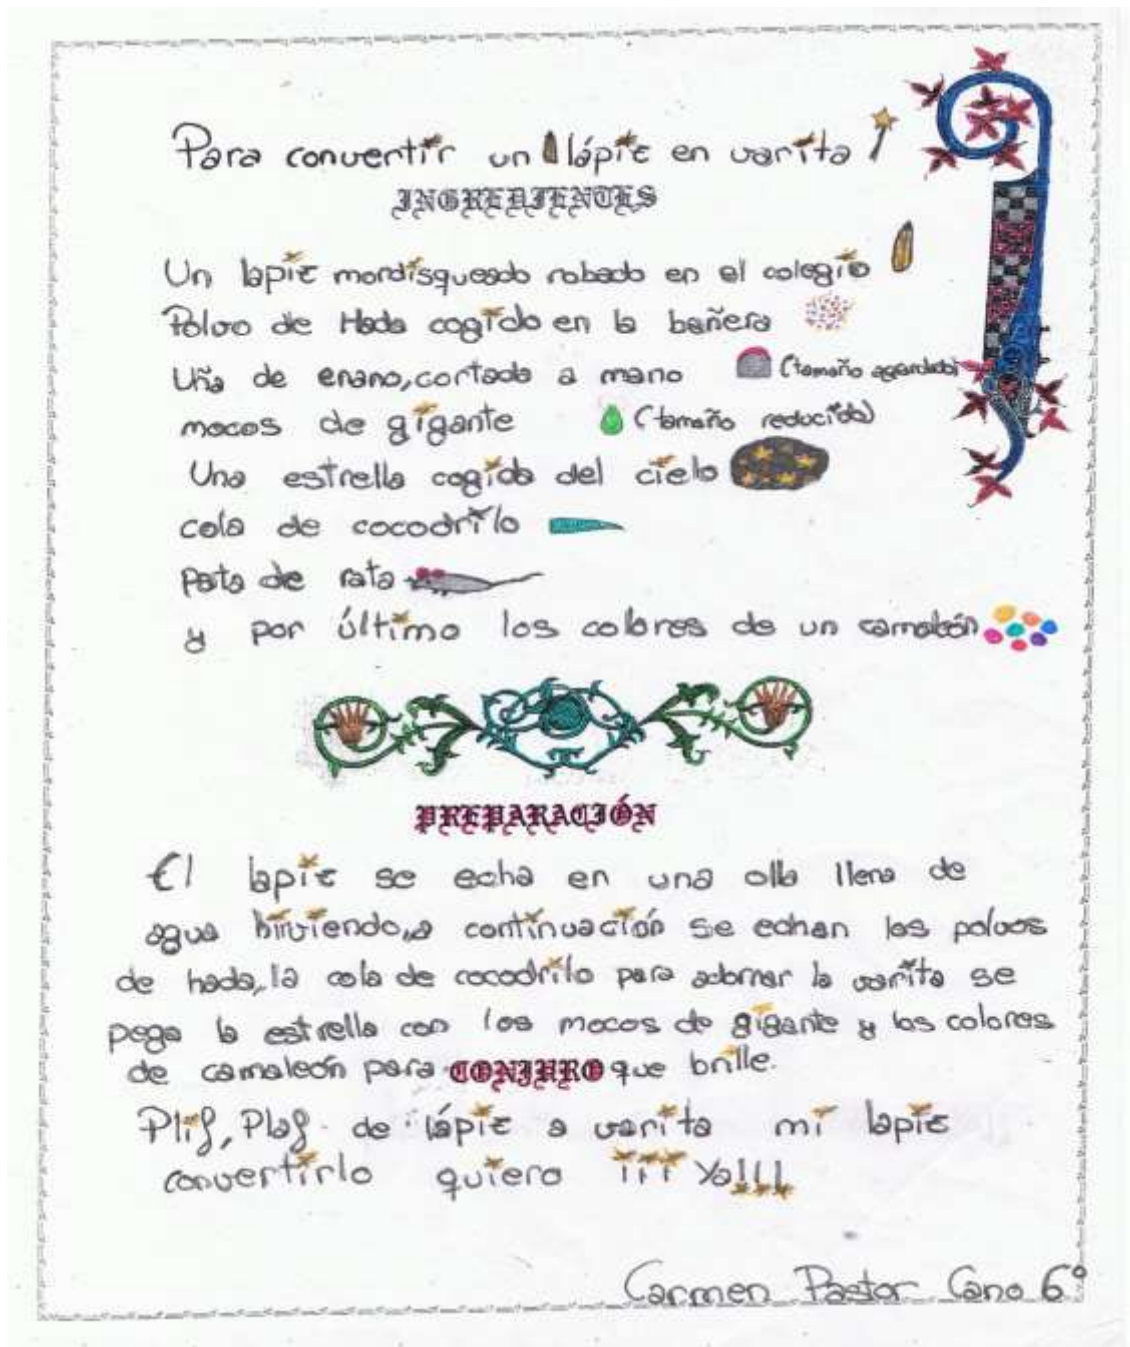 Para convertir un lápiz en varita
INGREDIENTES
Un lapiz mordisqueado robado en el colegio
Polvo de Hada cogido en la bañera
Uña de enano, cortada a mano (tamaño agrandado)
mocos de gigante (tamaño reducido)
Una estrella cogida del cielo
cola de cocodrilo
pata de rata
y por último los colores de un camaleón
PREPARACIÓN
El lapiz se echa en una olla llena de
agua hirviendo, a continuación se echan los polvos
de hada, la cola de cocodrilo para adornar la varita se
pega la estrella con los mocos de gigante y los colores
de camaleón para CONJURO que brille.
Plif, Plaf de lápiz a varita mi lapiz
convertirlo quiero ¡¡¡Ya!!!
Carmen Pastor Cano 6º